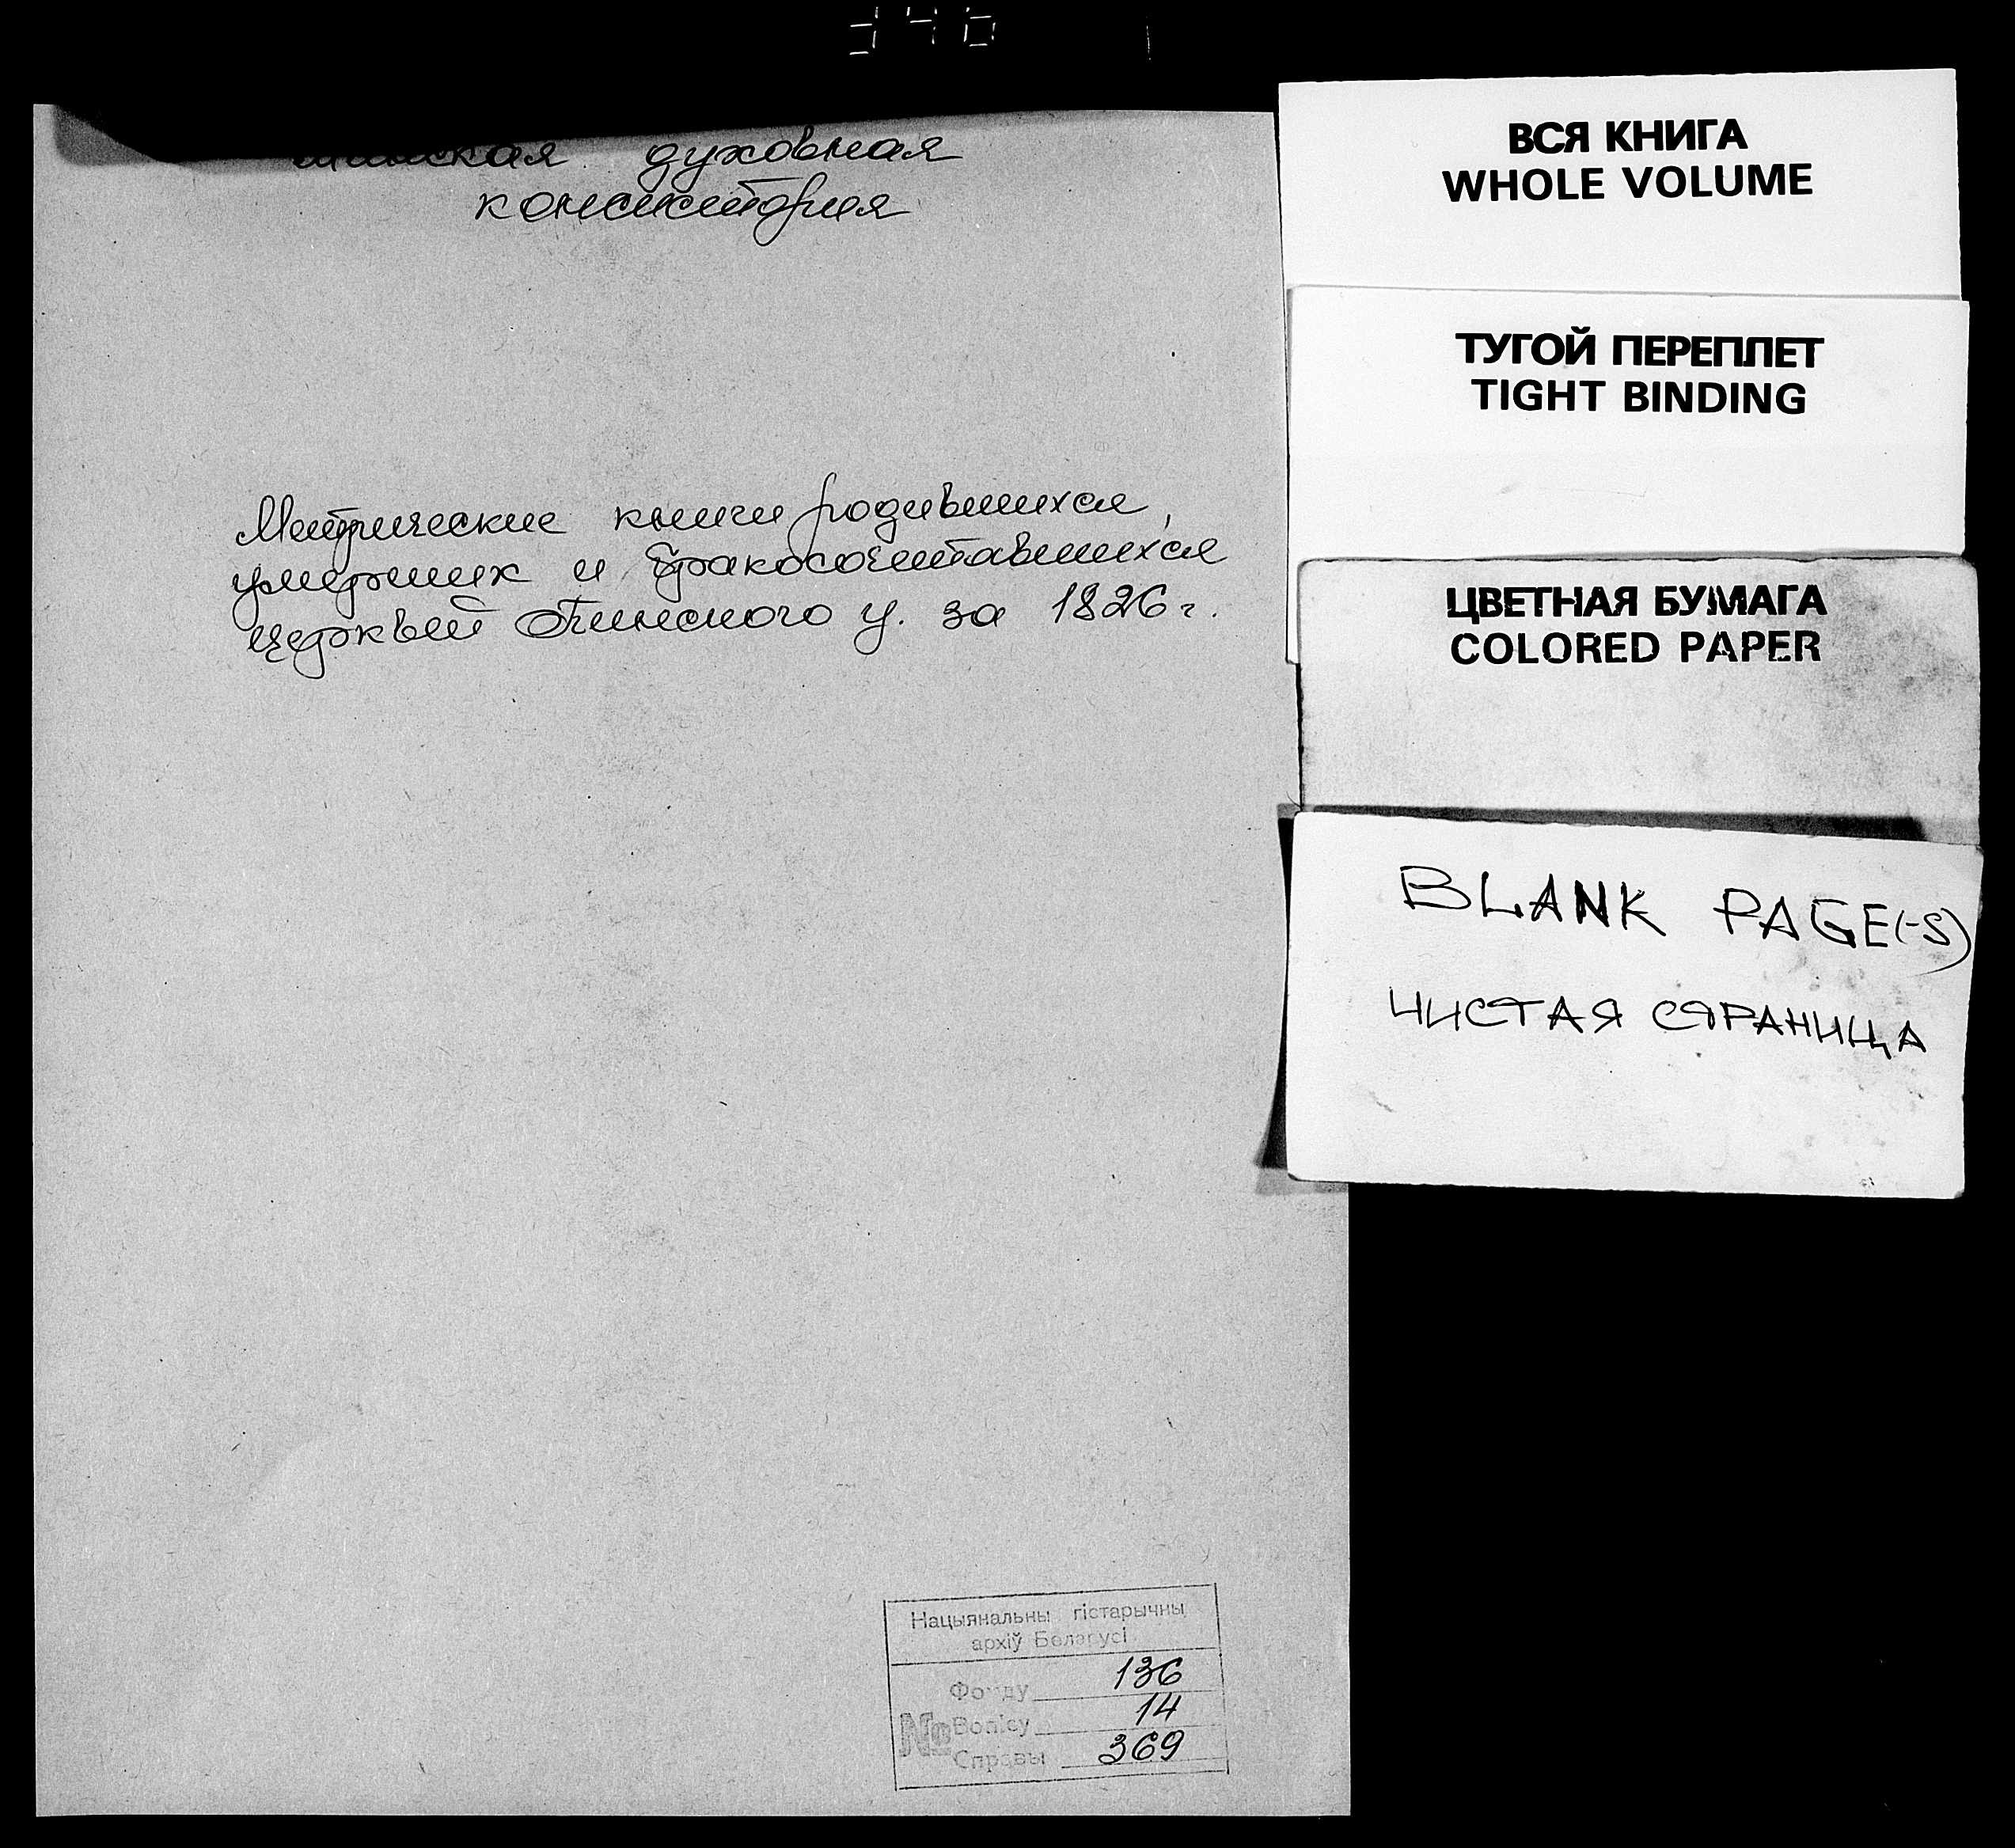 Минская духовная
консистория
Метрические книги родившихся,
умерших и бракосочетавшихся
церквей Пинского у. за 1826 г.
Нацыянальны гістарычны
архіў Беларусі
Фонду 136
№ Вопісу 14
Справы 369
ВСЯ КНИГА
WHOLE VOLUME
ТУГОЙ ПЕРЕПЛЕТ
TIGHT BINDING
ЦВЕТНАЯ БУМАГА
COLORED PAPER
BLANK PAGE(-S)
ЧИСТАЯ СТРАНИЦА